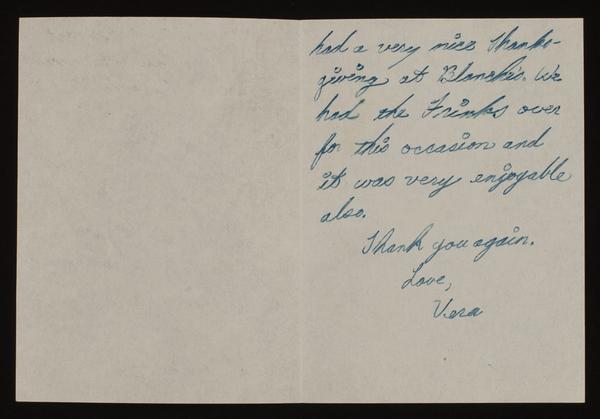 had a very nice Thanks-
giving at Blanche's. We
had the Frinks over
for this occasion and
it was very enjoyable
also.
Thank you again.
Love,
Vera